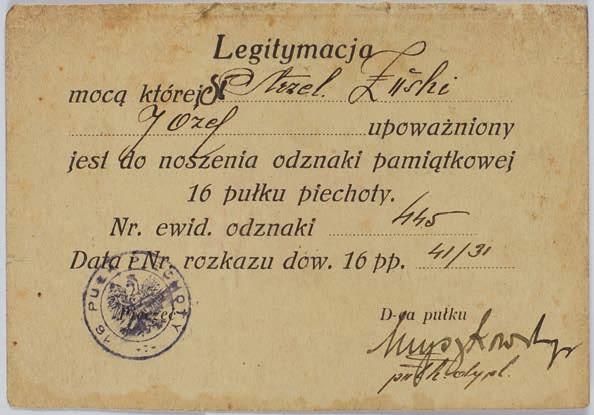 Legitymacja
mocą której St. Strzel. Żyński
Józef upoważniony
jest do noszenia odznaki pamiątkowej
16 pułku piechoty.
Nr. ewid. odznaki 445
Data i Nr. rozkazu dow. 16 pp. 41/31
16 PUŁK PIECHOTY
Pieczęć
D-ca pułku
płk. dypl.